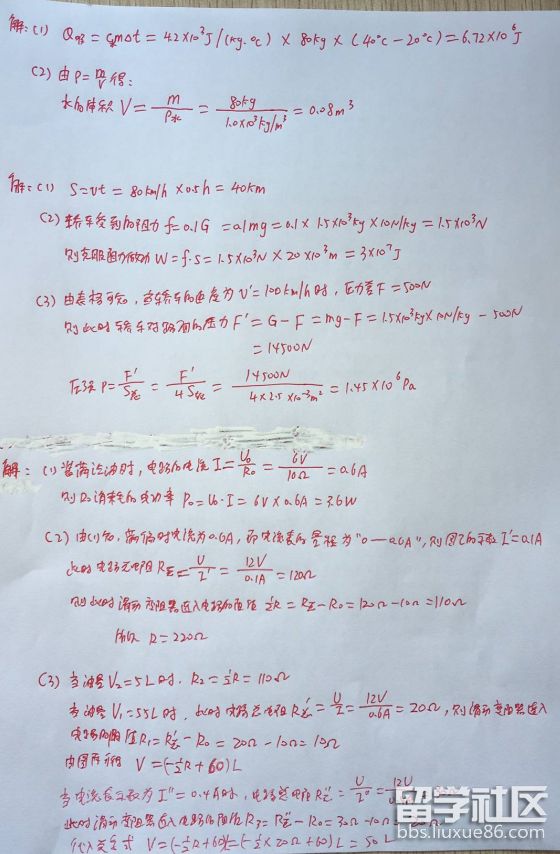 解:(1) Q吸 = cmΔt = 4.2×10³J/(kg·℃) × 80kg × (40℃ - 20℃) = 6.72×10⁶J
(2) 由ρ = m/V 得:
水的体积 V = m/ρ水 = 80kg/1.0×10³kg/m³ = 0.08m³
解:(1) S = vt = 80km/h × 0.5h = 40km
(2) 轿车受到的阻力 f = 0.1G = 0.1mg = 0.1 × 1.5×10³kg × 10N/kg = 1.5×10³N
则克服阻力做功 W = f·s = 1.5×10³N × 20×10³m = 3×10⁷J
(3) 由表格可知,当轿车的速度为 v' = 100km/h时,压力差F = 500N
则此时轿车对路面的压力 F' = G - F = mg - F = 1.5×10³kg×10N/kg - 500N
= 14500N
压强 P = F'/S总 = F'/4S = 14500N/4×2.5×10⁻³m² = 1.45×10⁶Pa
解:(1) 当满偏时,电路的电流 I = U₀/R₀ = 6V/10Ω = 0.6A
则R₀消耗的电功率 P₀ = U₀·I = 6V×0.6A = 3.6W
(2) 由(1)知,满偏时电流为0.6A,而电流表的量程为"0—0.6A",则图乙的示数 I' = 0.1A
此时电路总电阻 R总 = U/I' = 12V/0.1A = 120Ω
则此时滑动变阻器连入电路的阻值 ½R = R总 - R₀ = 120Ω - 10Ω = 110Ω
所以 R = 220Ω
(3) 当油量 V₂ = 5L时, R₂ = ½R = 110Ω
当油量 V₁ = 55L时,此时电路总电阻 R总' = U/I = 12V/0.6A = 20Ω,则滑动变阻器连入
电路的阻值 R₁ = R总' - R₀ = 20Ω - 10Ω = 10Ω
由图丙得 V = (-½R + 60)L
当电流表示数为 I'' = 0.4A时,电路总电阻 R总'' = U/I'' = 12V
此时滑动变阻器连入电路的阻值 R₃ = R总'' - R₀ = 30Ω - 10Ω
代入关系式 V = (-½R + 60)L = (-½×20Ω + 60)L = 50L
留学社区
bbs.liuxue86.com